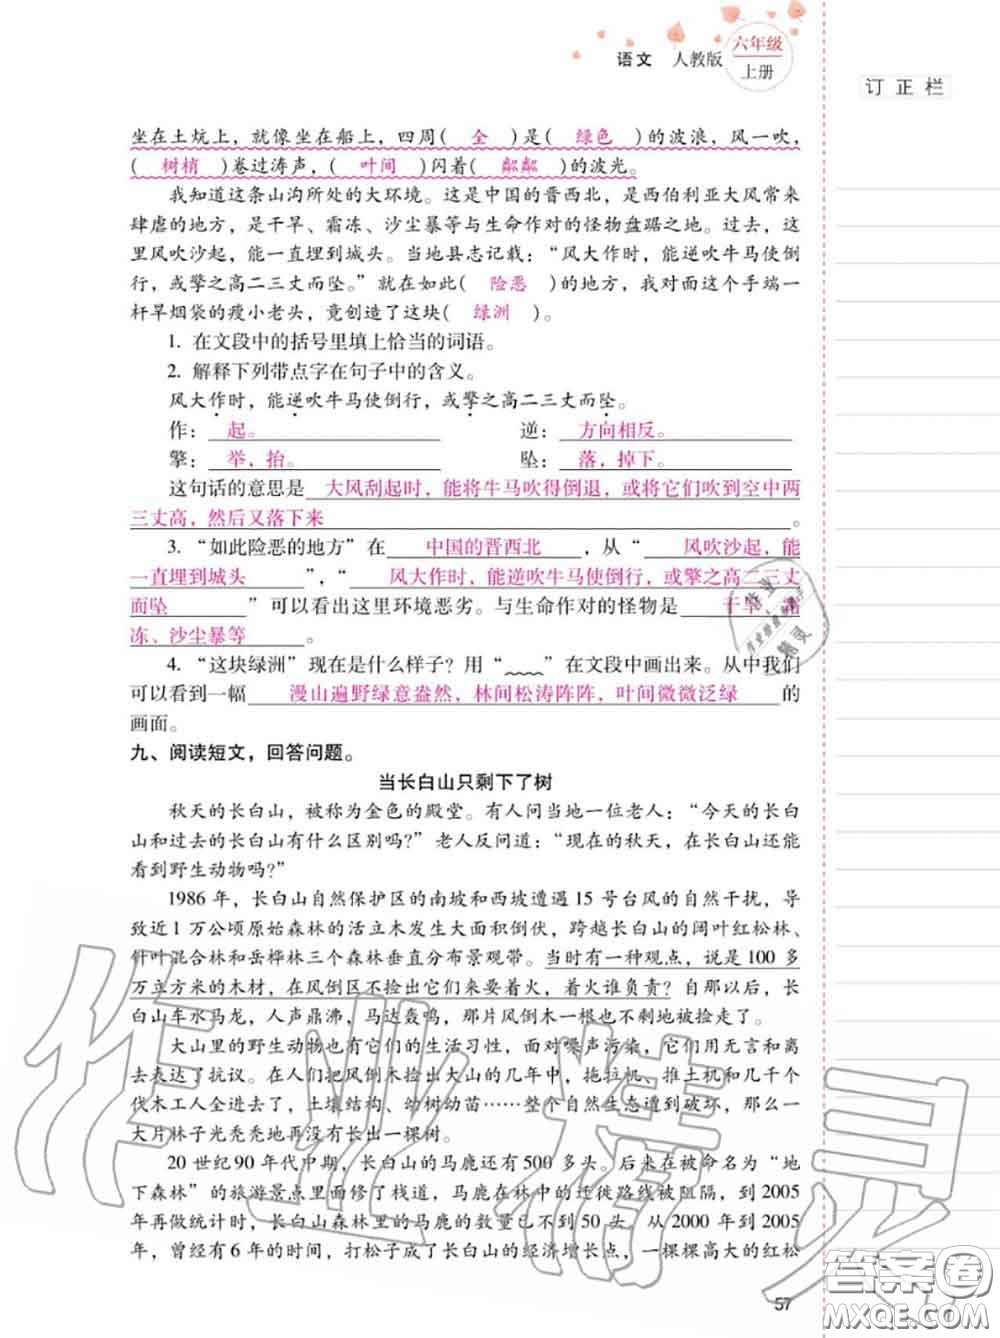 语文 人教版 六年级
上册
订正栏
坐在土炕上，就像坐在船上，四周( 全 )是( 绿色 )的波浪，风一吹，
( 树梢 )卷过涛声，( 叶间 )闪着( 粼粼 )的波光。
我知道这条山沟所处的大环境。这是中国的晋西北，是西伯利亚大风常来
肆虐的地方，是干旱、霜冻、沙尘暴等与生命作对的怪物盘踞之地。过去，这
里风吹沙起，能一直埋到城头。当地县志记载：“风大作时，能逆吹牛马使倒
行，或擎之高二三丈而坠。”就在如此( 险恶 )的地方，我对面这个手端一
杆旱烟袋的瘦小老头，竟创造了这块( 绿洲 )。
1. 在文段中的括号里填上恰当的词语。
2. 解释下列带点字在句子中的含义。
风大作时，能逆吹牛马使倒行，或擎之高二三丈而坠。
作： 起。 逆： 方向相反。
擎： 举，抬。 坠： 落，掉下。
这句话的意思是 大风刮起时，能将牛马吹得倒退，或将它们吹到空中两
三丈高，然后又落下来 。
3. “如此险恶的地方”在 中国的晋西北 ，从“ 风吹沙起，能
一直埋到城头 ”，“ 风大作时，能逆吹牛马使倒行，或擎之高二三丈
而坠 ”可以看出这里环境恶劣。与生命作对的怪物是 干旱、霜
冻、沙尘暴等 。
4. “这块绿洲”现在是什么样子？用“ ”在文段中画出来。从中我们
可以看到一幅 漫山遍野绿意盎然，林间松涛阵阵，叶间微微泛绿 的
画面。
九、阅读短文，回答问题。
当长白山只剩下了树
秋天的长白山，被称为金色的殿堂。有人问当地一位老人：“今天的长白
山和过去的长白山有什么区别吗？”老人反问道：“现在的秋天，在长白山还能
看到野生动物吗？”
1986 年，长白山自然保护区的南坡和西坡遭遇 15 号台风的自然干扰，导
致近 1 万公顷原始森林的活立木发生大面积倒伏，跨越长白山的阔叶红松林、
针叶混合林和岳桦林三个森林垂直分布景观带。当时有一种观点，说是 100 多
万立方米的木材，在风倒区不捡出它们来要着火，着火谁负责？自那以后，长
白山车水马龙，人声鼎沸，马达轰鸣，那片风倒木一根也不剩地被捡走了。
大山里的野生动物也有它们的生活习性，面对噪声污染，它们无言和离
去表达了抗议。在人们把风倒木捡出大山的几年中，拖拉机、推土机和几千个
伐木工人全进去了，土壤结构、幼树幼苗……整个自然生态遭到破坏，那么一
大片林子光秃秃地再没有长出一棵树。
20 世纪 90 年代中期，长白山的马鹿还有 500 多头。后来在被命名为“地
下森林”的旅游景点里面修了栈道，马鹿在林中的迁徙路线被阻隔，到 2005
年再做统计时，长白山森林里的马鹿的数量已不到 50 头。从 2000 年到 2005
年，曾经有 6 年的时间，打松子成了长白山的经济增长点，一棵棵高大的红松
57
作业精灵
答案圈
MXQE.COM